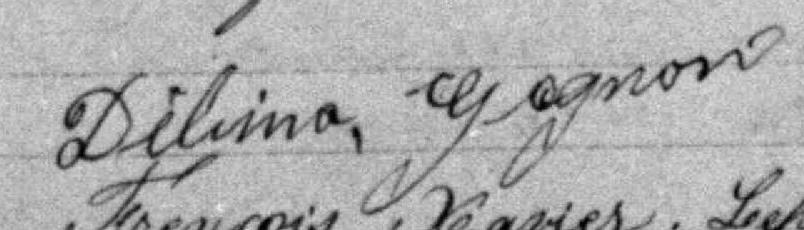 Délima Gagnon
François Xavier